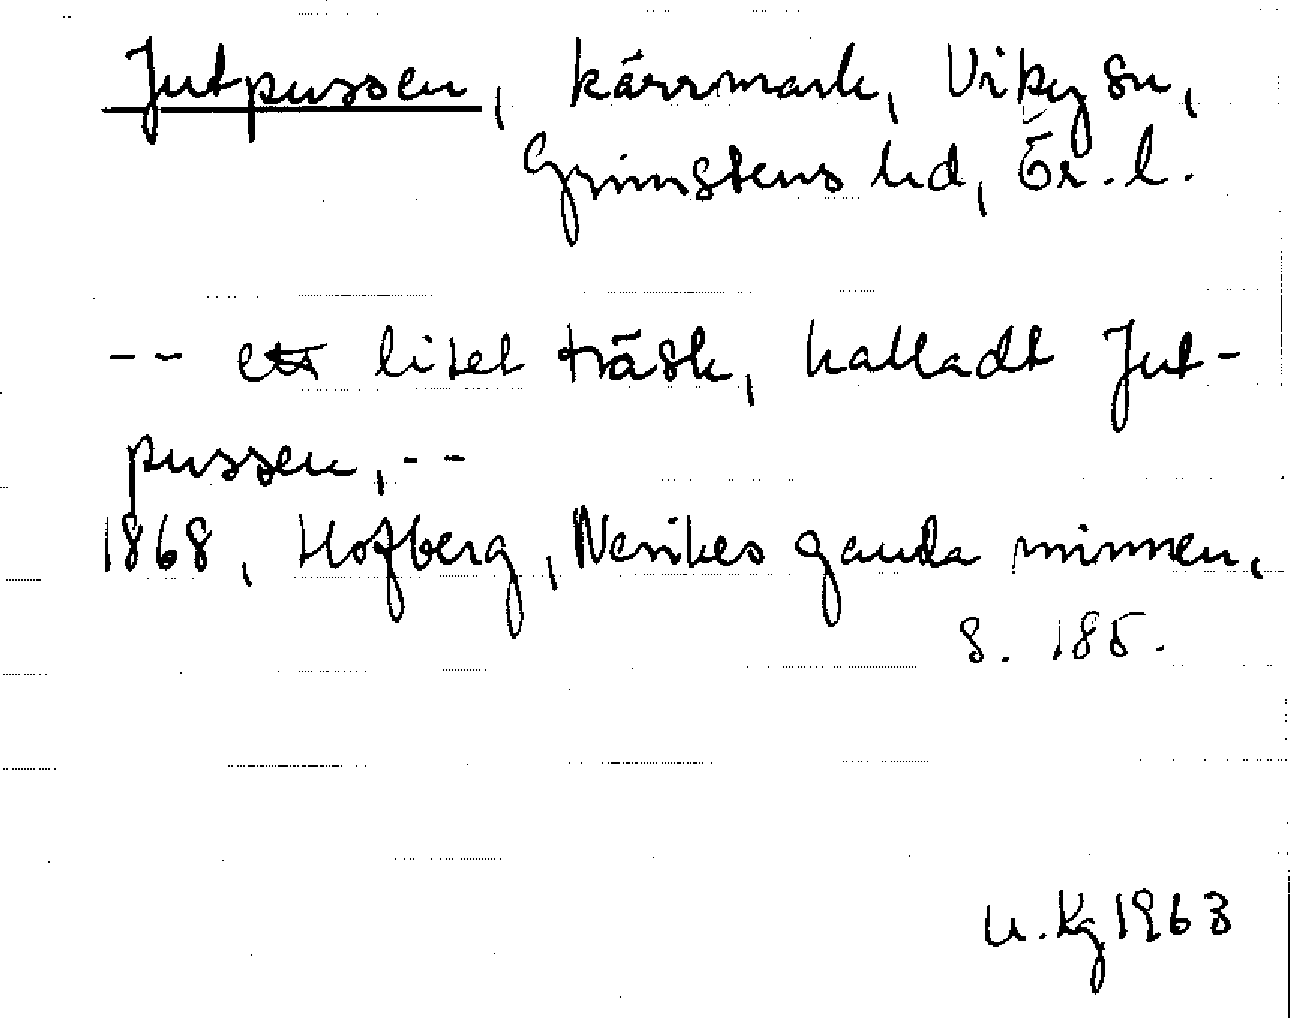 Jutpussen, kärrmark, Viby sn,
Grimstens hd, Ör. l.
-- ett litet träsk, kalladt Jut-
pussen, --
1868, Hofberg, Nerikes gamla minnen,
s. 185.
u. Kg 1963